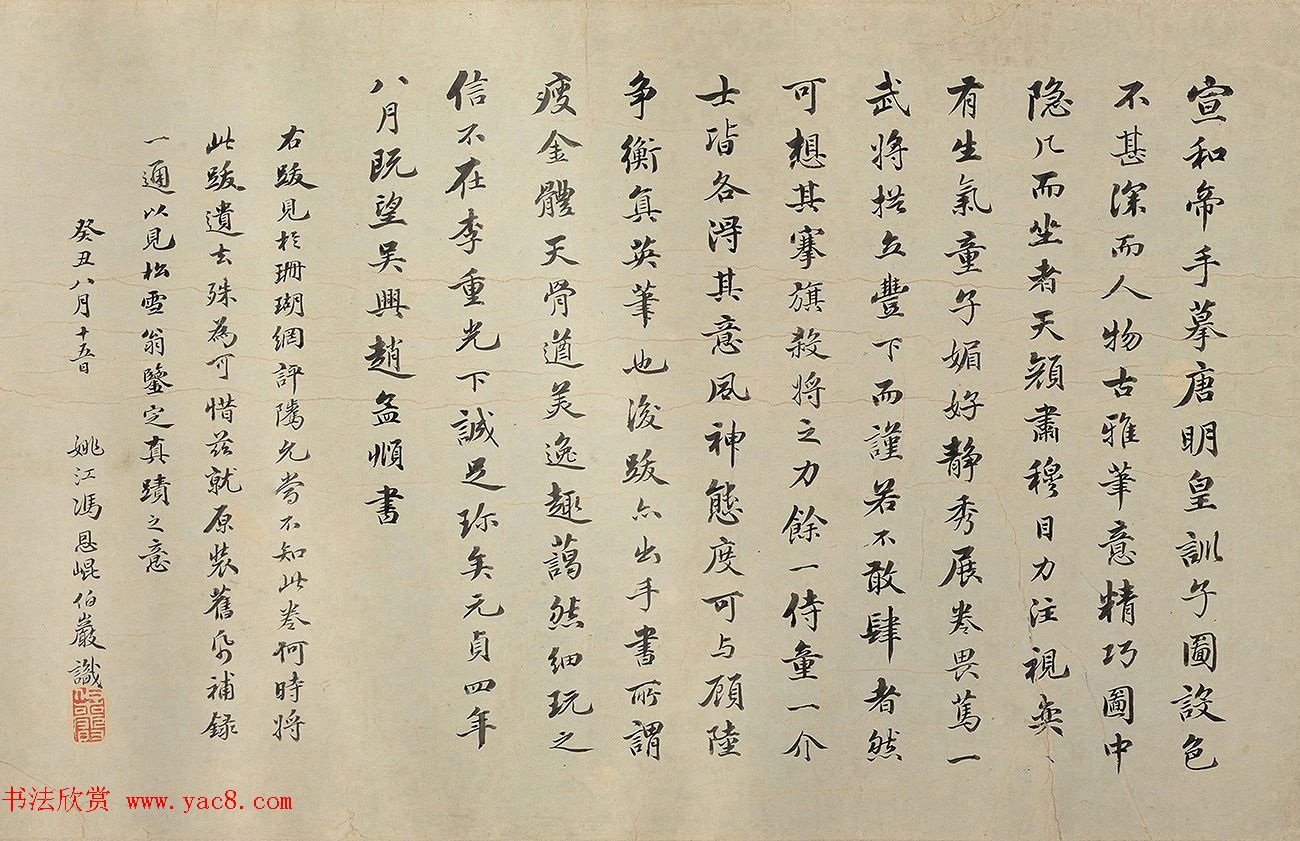 宣和帝手摹唐明皇訓子圖設色
不甚深而人物古雅筆意精巧圖中
隐几而坐者天顔肅穆目力注視奕〻
有生氣童子媚好静秀展卷畏篤一
武将拱立豐下而謹若不敢肆者然
可想其搴旗殺将之力餘一侍童一介
士皆各得其意風神態度可与顧陸
争衡真英筆也後跋亦出手書所謂
瘦金體天骨遒美逸趣藹然細玩之
信不在李重光下誠足珍矣元貞四年
八月既望吴興趙孟頫書
右跋見於珊瑚網評隲允當不知此卷何時将
此跋遺去殊為可惜兹就原装舊帋補録
一通以見松雪翁鑒定真蹟之意
癸丑八月十五日 姚江馮恩崐伯巖識
书法欣赏 www.yac8.com